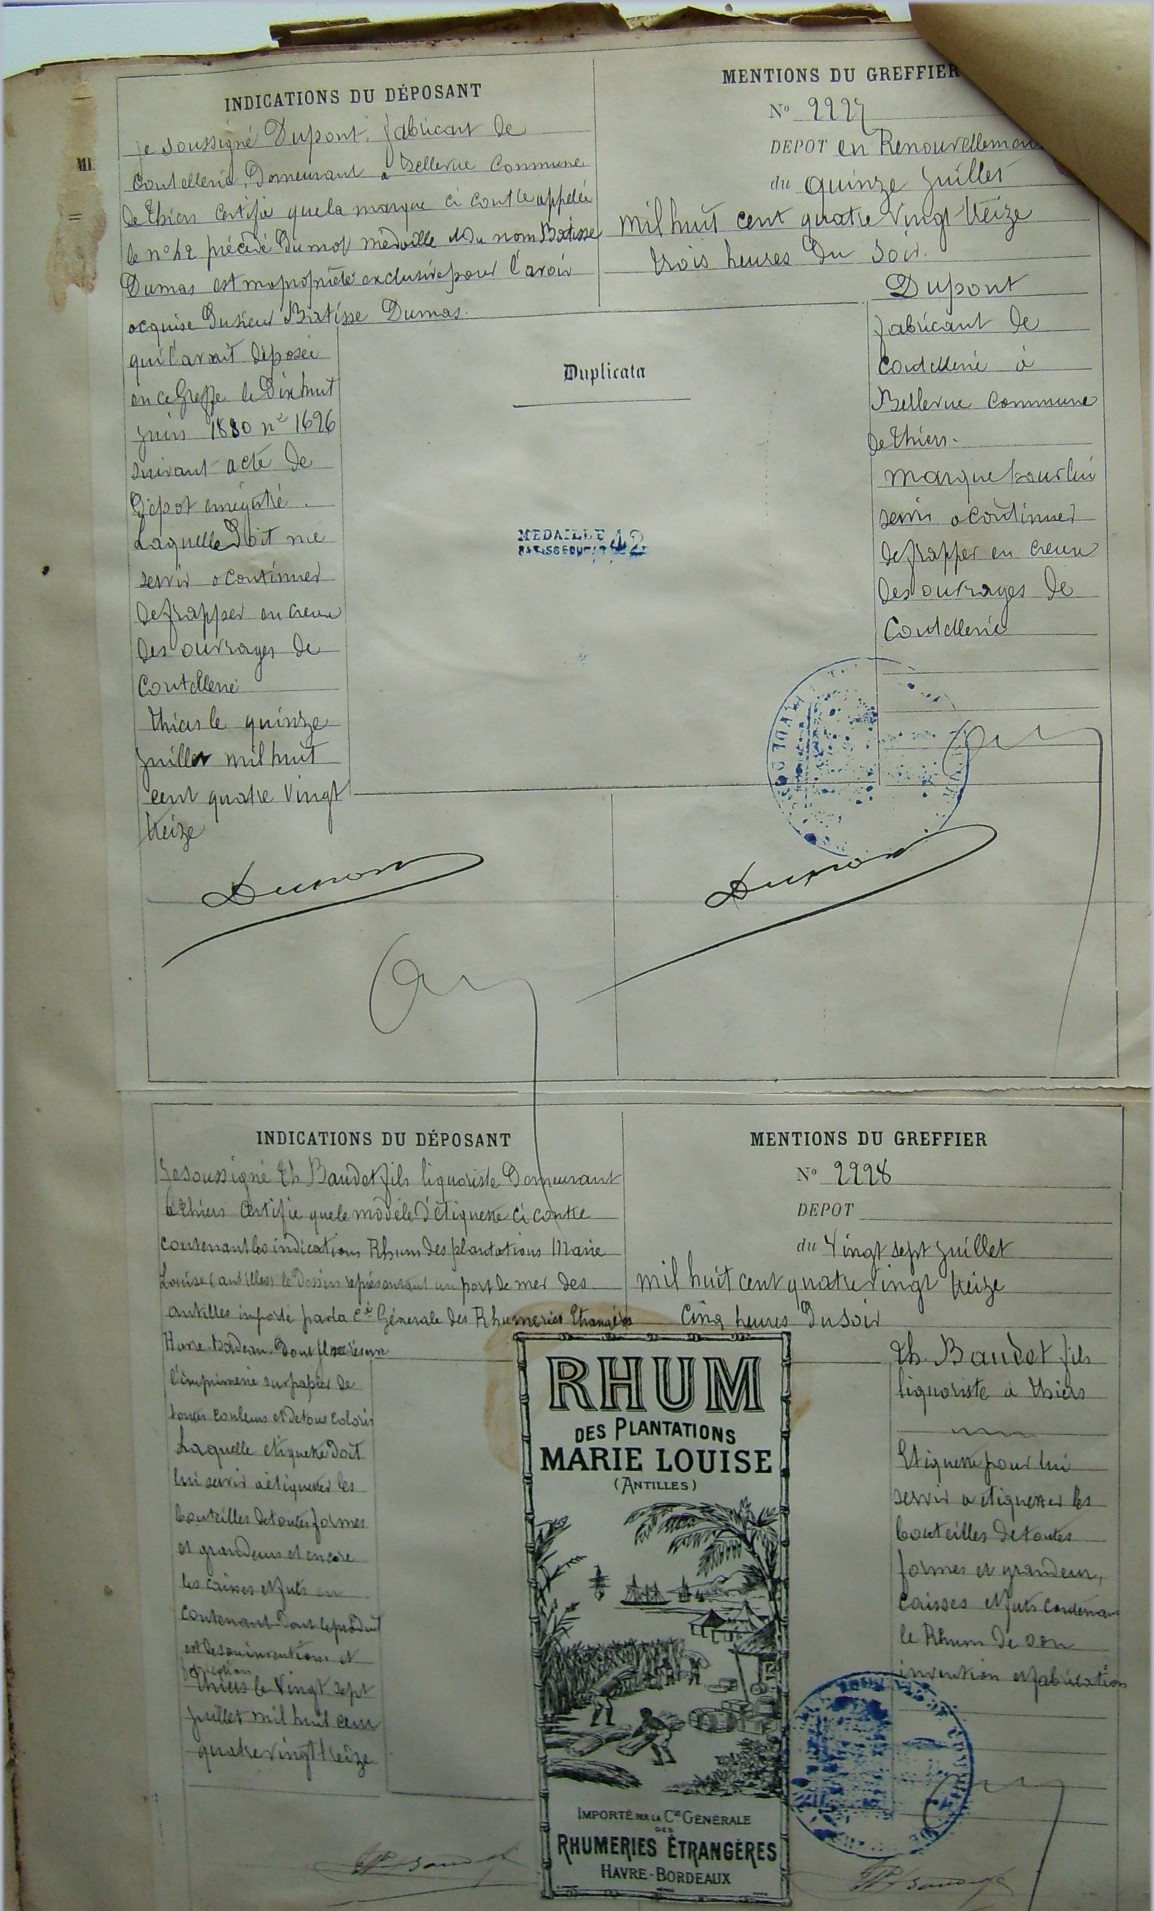 INDICATIONS DU DÉPOSANT
Je soussigné Dupont, fabricant de
Coutellerie, Demeurant à Bellevue Commune
de Thiers Certifie que la marque ci contre appelée
le n° 42 précédé du mot médaille et du nom Batisse
Dumas est ma propriété exclusive pour l'avoir
acquise du sieur Batisse Dumas
qui l'avait déposée
en ce Greffe le Dix huit
Juin 1880 n° 1696
suivant acte de
Dépot enregistré
Laquelle Doit me
servir a continuer
de frapper en creux
des ouvrages de
Coutellerie
Thiers le quinze
Juillet mil huit
cent quatre vingt
treize
Dupont
MENTIONS DU GREFFIER
N° 2227
DEPOT en Renouvellement
du quinze Juillet
mil huit cent quatre vingt treize
trois heures du soir.
Dupont
fabricant de
Coutellerie à
Bellevue Commune
de Thiers.
marque pour lui
servir a continuer
de frapper en creux
des ouvrages de
Coutellerie
Dupont
Duplicata
MEDAILLE 42
INDICATIONS DU DÉPOSANT
Je soussigné Th. Baudet fils liquoriste Demeurant
à Thiers Certifie que le modèle d'étiquette ci contre
contenant les indications Rhum des plantations Marie
Louise (antilles) le Dessin représentant un port de mer des
antilles importé par la Cie Générale des Rhumeries Etrangères
l'imprimerie sur papier de
tous couleurs et de tous coloris
Laquelle etiquette doit
lui servir a etiqueter les
bouteilles de toutes formes
et grandeurs et encore
les caisses et futs en
contenant dont le produit
est de son invention et
Thiers le Vingt sept
Juillet mil huit cent
quatre vingt treize
MENTIONS DU GREFFIER
N° 2228
DEPOT
du Vingt sept Juillet
mil huit cent quatre vingt treize
Cinq heures du soir
Th. Baudet fils
liquoriste a Thiers
Etiquette pour lui
servir a etiqueter les
bouteilles de toutes
formes et grandeur,
Caisses et futs contenant
le Rhum de son
invention et fabrication
RHUM
DES PLANTATIONS
MARIE LOUISE
(ANTILLES)
IMPORTÉ PAR LA Cie GÉNÉRALE
DES
RHUMERIES ÉTRANGÈRES
HAVRE-BORDEAUX